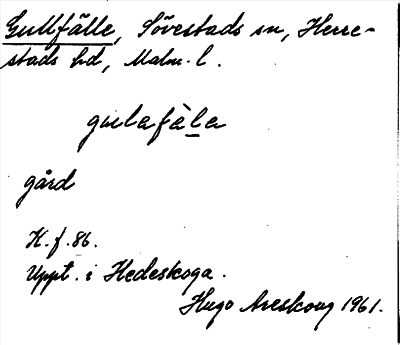 Gullfälle, Sövestads sn, Herre-
stads hd, Malm. l.
gulafàla
gård
K. f. 86.
Uppt. i Hedeskoga.
Hugo Areskoug 1961.